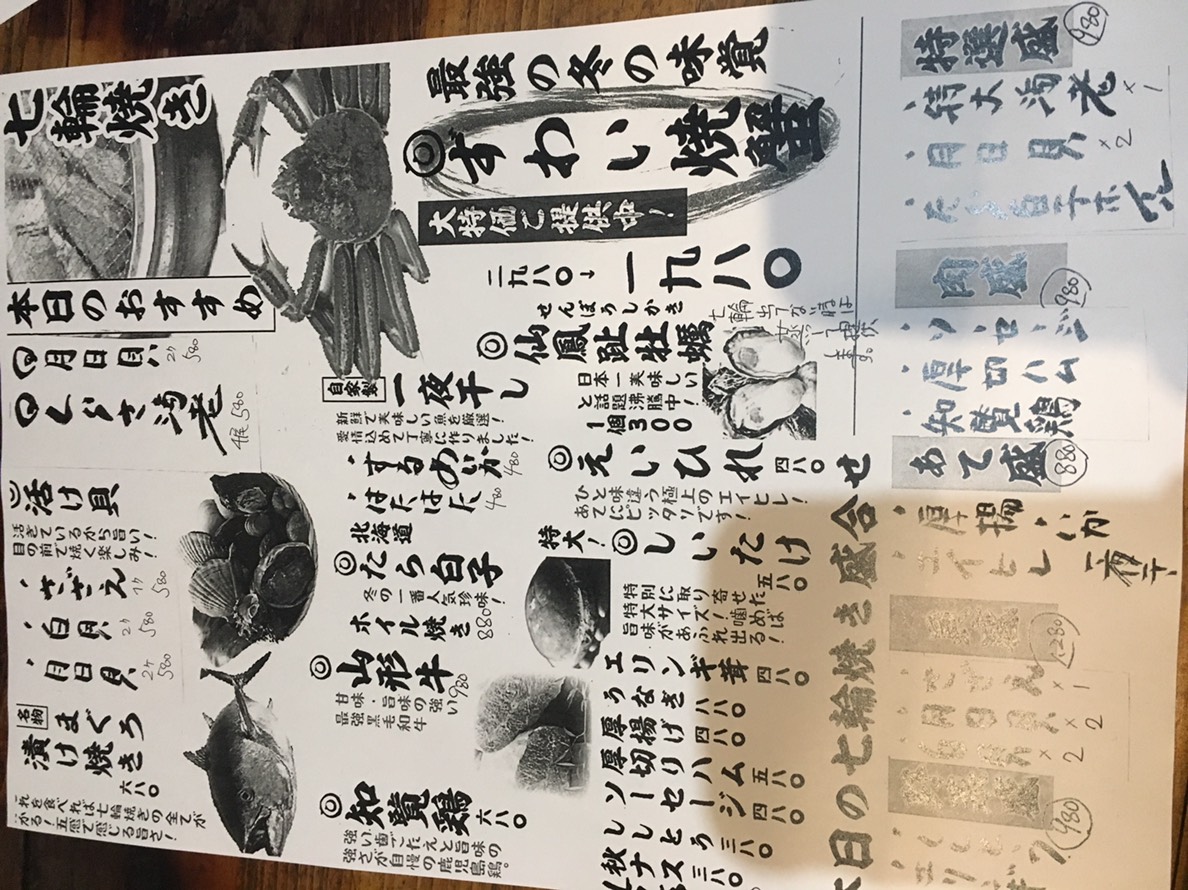 七輪焼き
本日のおすすめ
月日貝 2ケ 580
活け貝
活きているから旨い!
目の前で焼く楽しみ!
さざえ 1ケ 580
白貝 2ケ 580
月日貝 2ケ 580
名物
まぐろ
漬け焼き
六八〇
これを食べれば七輪焼きの全てが
がる!五感で感じる旨さ!
最強の冬の味覚
ずわい焼蟹
大特価ご提供中!
二九八〇→一九八〇
自家製
一夜干し
新鮮で美味しい魚を厳選!
愛情込めて丁寧に作りました!
するめいか 480
はたはた 480
北海道
たら白子
冬の一番人気珍味!
ホイル焼き 880
山形牛 980
甘味・旨味の強い
最強黒毛和牛
知覧鶏 六八〇
強い歯ごたえと旨味の
強さが自慢の鹿児島鶏。
せんぽうしかき
仙鳳趾牡蠣
日本一美味しい
と話題沸騰中!
1個300
七輪出てない時は
えいひれ 四八〇
ひと味違う極上のエイヒレ!
あてにピッタリです!
特大!
しいたけ 五八〇
特別に取り寄せた
特大サイズ!噛めば
旨味があふれ出る!
エリンギ茸 四八〇
うなぎ 八八〇
厚揚げ 四八〇
厚切りハム 五八〇
ソーセージ 四八〇
ししとう 三八〇
秋ナス 三八〇
日の七輪焼き盛合せ
特選盛 980
特大海老×1
月日貝×2
たら白子ホイル
肉盛 980
ソーセージ
厚切ハム
知覧鶏
あて盛 880
厚揚
いか一夜干
エイヒレ
1280
さざえ×1
月日貝×2
白貝×2
980